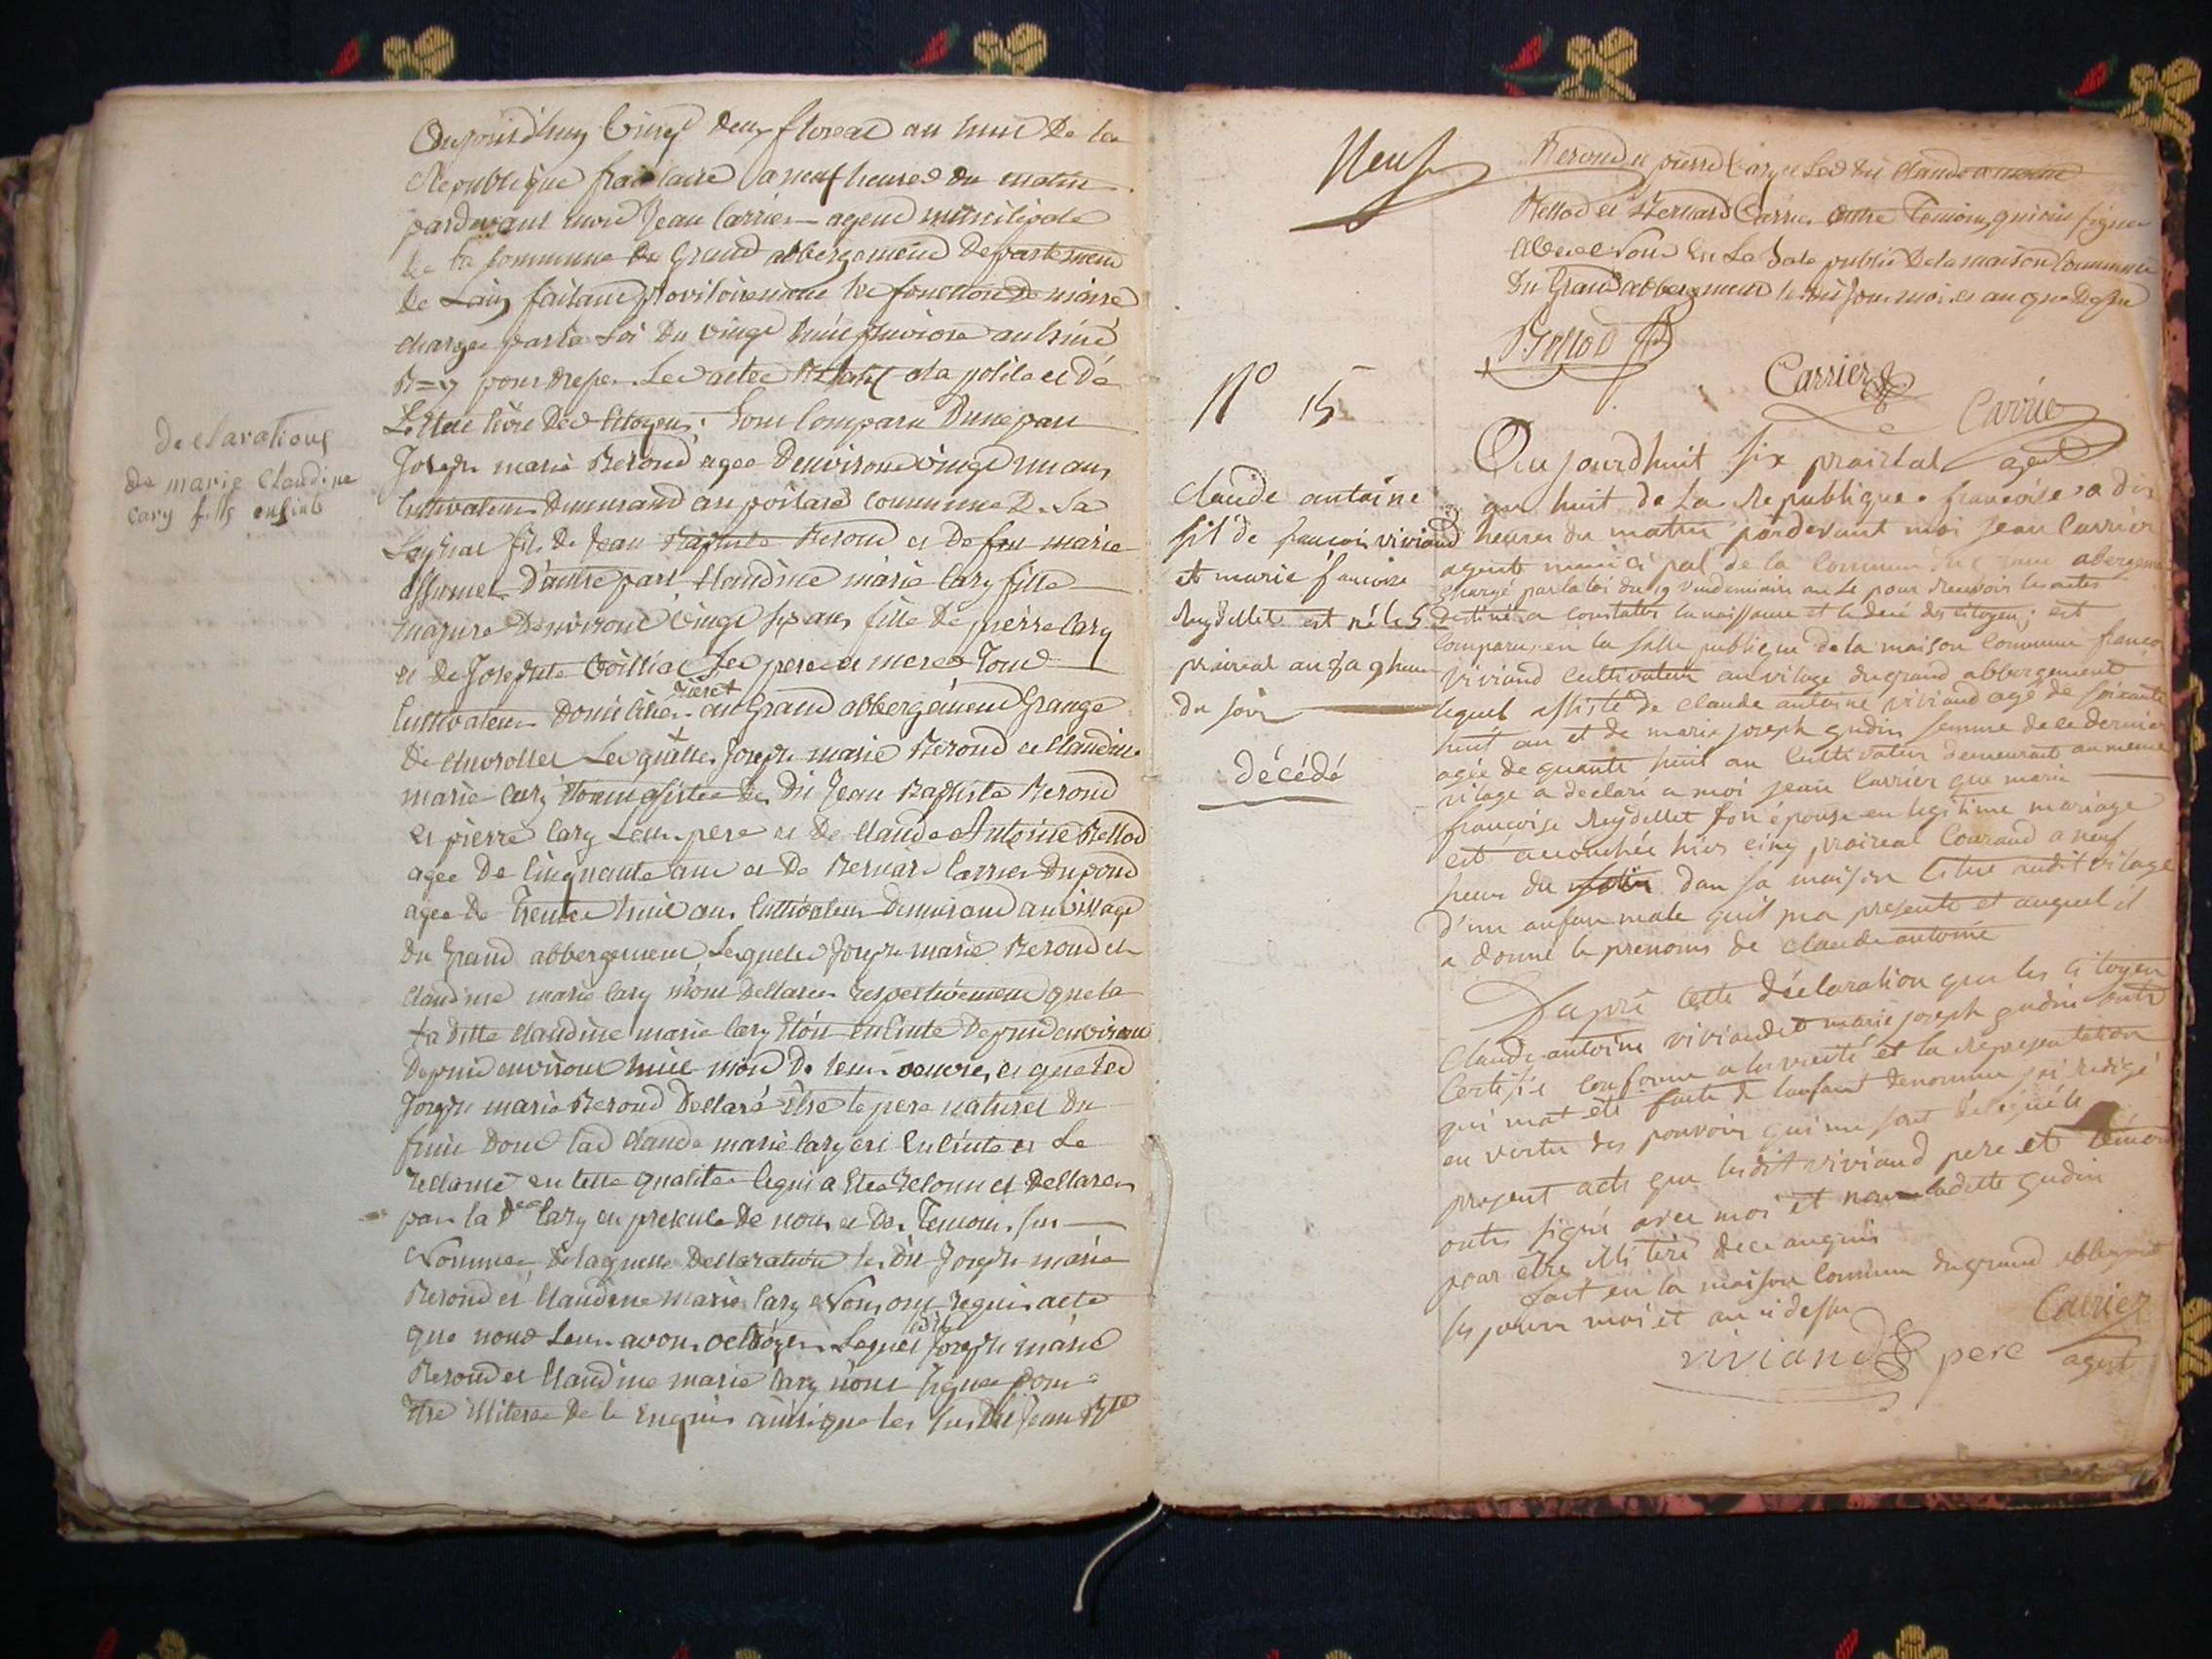 Declarations
de marie Claudine
Cary fille enfinte
Aujourd'huy vingt deux floreal an huit de la
Republique francaise a neuf heures du matin
pardevant nous Jean Carrier agend municipale
de la commune du Grand abbergement departement
de Lain faisand provisoirement les fonction de maire
chargee par la Loi du vingt huit pluviose an huit
pour dresser Les actes a la
des Citoyens. Sont Comparu d'une part
Joseph marie Berond agee denviron vingt un an,
Cultivateur demeurand au commune de
fils de Jean Baptiste Berond et de feu marie
d'autre part Claudine marie Cary fille
majure denviron vingt six ans fille de pierre Cary
et de Josephte Les pere et mere Tous
rieret
Cultivateur domicilier au Grand abbergement Grange
de Lesquelles Joseph marie Berond et Claudine
marie Cary assistee du dit Jean Baptiste Berond
et pierre Cary Leur pere et de Claude Antoine Bellod
agee de Cinquante ans et de Bernard Carrier dupond
agee de Trente huit ans Cultivateur demeurand au village
du Grand abbergement, Lesquelles Joseph marie Berond et
Claudine marie Cary nous dellarer respectivement que la
La ditte Claudine marie Cary enfinte depuis environ
depuis environ huit mois de leur oeuvres, et que led
Joseph marie Berond dellaré être le pere naturel du
fruit dont lad Claude marie Cary est enfinte et Le
rellame en cette qualitee Ce qui a Etee reconnu et dellaree
par la dte Cary en presence de nous et des Temoins sus
Nommee de laquelle dellaration les dit Joseph marie
Berond et Claudine marie Cary Nous ont requis acte
que nous Leur avons octroyer Lequel Joseph marie
Berond et Claudine marie Cary nont signee pour
Etre illiteree de le enquis ainsi que les susdit Jean Bte
Neuf
Berond et pierre Cary et Les dit Claude
Bellod et Bernard Carrier Temoins qui ont signer
avec Nous En La Sale public de la maison Commune
du Grand abbergement les dit jour mois et an que dessus
Bellod
Carrier
Carrier
agent
N° 15
Claude antoine
fil de francois viviand
et marie francoise
Reydellet est né le 5
praireal an 8 a 9 heure
du soir
décédé
Aujourdhuit six prairial
an huit de La Republique francoise a dix
heures du matin pardevant moi Jean Carrier
agent municipal de la Commune du Grand abergement
chargé par la loi du 19 vindemiaire an 4 pour recevoir les actes
destinés a constater la naissance et le decé des citoyens; est
Comparu en la salle publique de la maison Commune francois
viviand Cultivateur au vilage du grand abbergement
lequel assisté de claude antoine viviand agé de soixante
huit an et de marie joseph gudin femme de ce dernier
agée de quante huit an Cultivateur demeurant au meme
vilage a declaré a moi jean Carrier que marie
francoise Reydellet son épouse en legitime mariage
est acouchée hier cinq praireal Courand a neuf
heure du soir dan sa maison Citue audit vilage
d'un anfan male quil ma presenté et auquel il
a donné le prenoms de claude antoine
Dapré cette déclaration que les citoyen
Claude antoine viviand et marie joseph gudin onts
Certifié Conforme a la verité et la representation
qui mat été faite de lanfant denommé jai redigé
en vertu des pouvoirs qui me sont delegués le
present acte que lesdit viviand pere et témoin
onts signé avec moi et non ladette gudin
pour etre illitéré de ce anquis
fait en la maison Commune du grand abbergement
les jours mois et an ci dessu
viviand pere
Carrier
agent